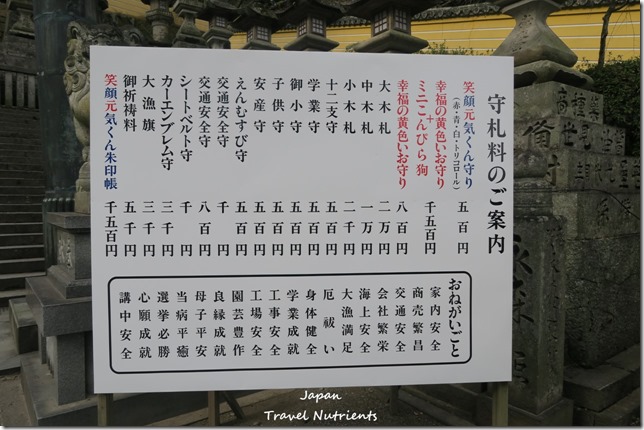 守札料のご案内
笑顔元気くん守り 五百円
（赤・青・白・トリコロール）
幸福の黄色いお守り
+
ミニこんぴら狗 千五百円
幸福の黄色いお守り 八百円
大木札 二万円
中木札 一万円
小木札 二千円
十二支守 五百円
学業守 五百円
御小守 五百円
子供守 五百円
安産守 五百円
えんむすび守 五百円
交通安全守 千円
交通安全守 八百円
シートベルト守 千円
カーエンブレム守 三千円
大漁旗 三千円
御祈祷料 五千円
笑顔元気くん朱印帳 千五百円
おねがいごと
家内安全
商売繁昌
交通安全
会社繁栄
海上安全
大漁満足
厄祓い
身体健全
学業成就
工事安全
工場安全
園芸豊作
良縁成就
母子平安
当病平癒
選挙必勝
心願成就
講中安全
Japan
Travel Nutrients